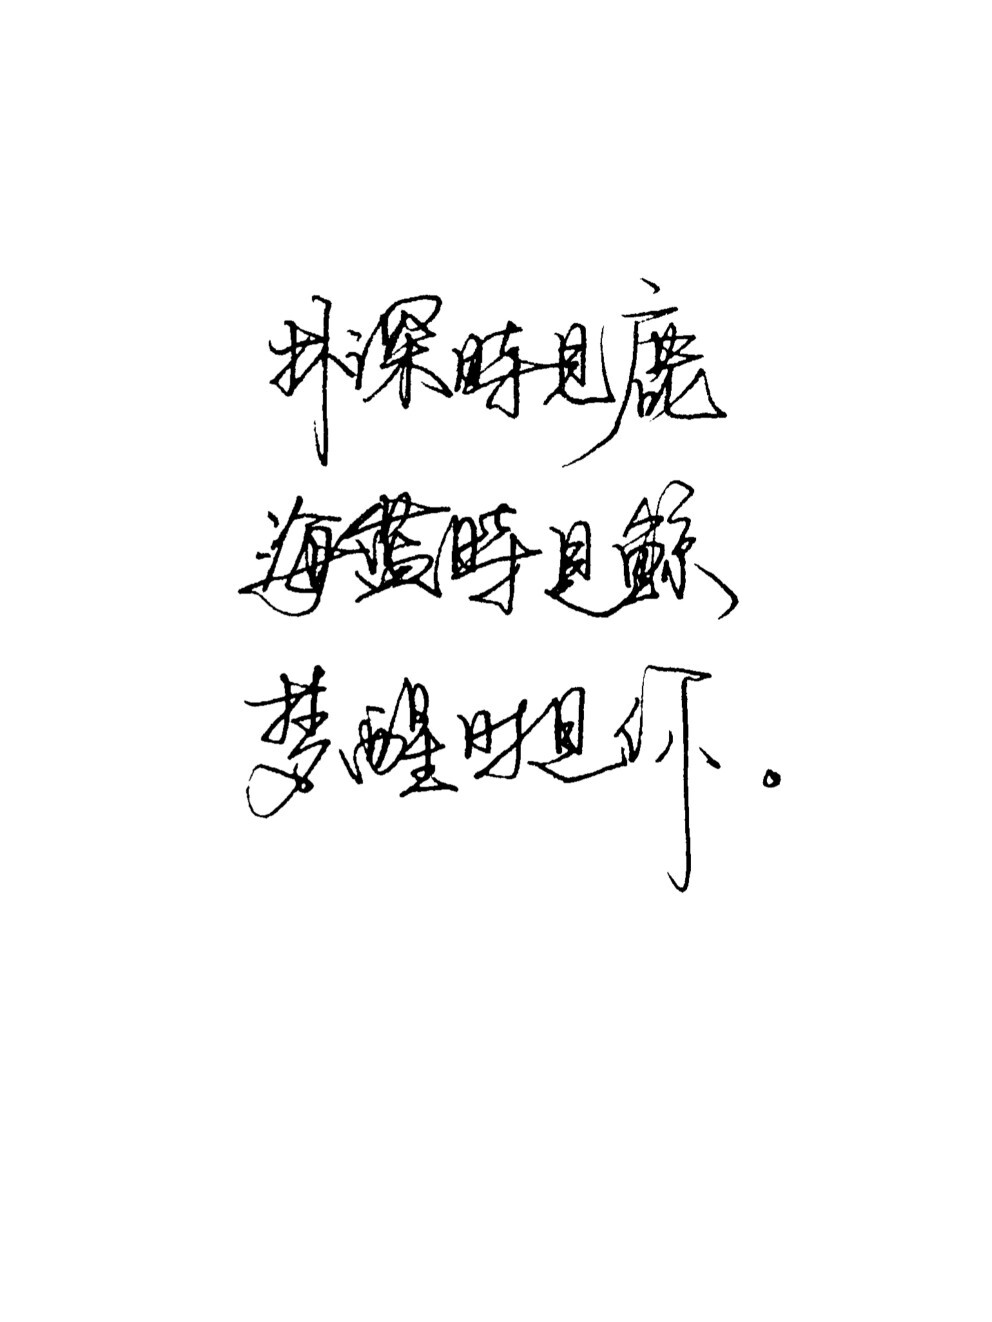 林深時見鹿
海藍時見鯨
梦醒时見你。